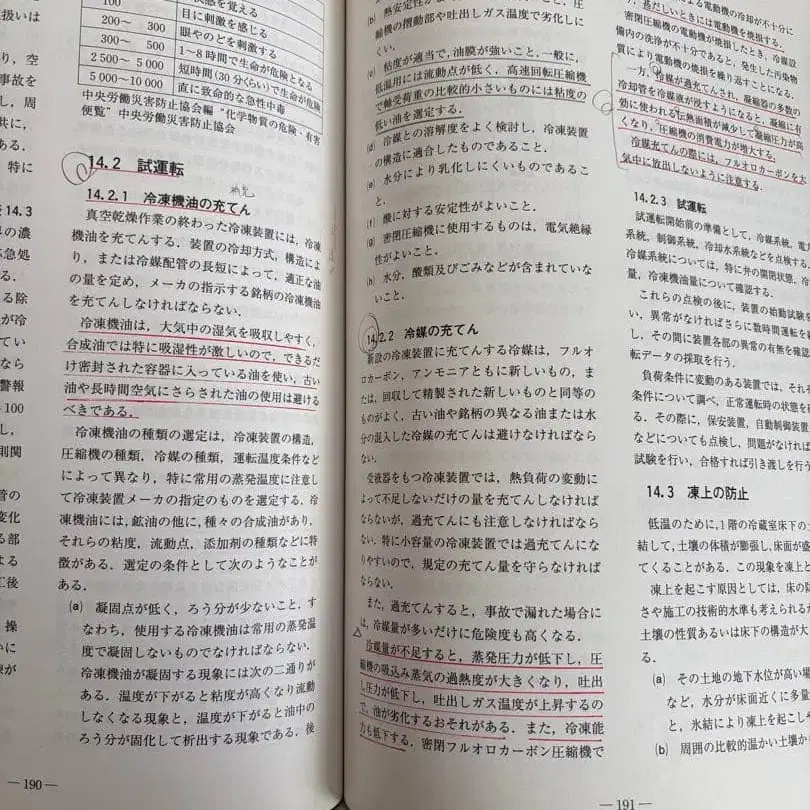 扱いは
り，空
事故を
し，周
共に，
ある．
特に
14.3
の濃
応急処
る．
る除
が冷
てい
なら
警報
100
し，
則関
管の
変化
る部
よる
工後
操
に
が
100
感を覚える
目に刺激を感じる
200～ 300
眼やのどを刺激する
300～ 500
1～8時間で生命が危険となる
2 500～ 5 000
短時間（30分くらい）で生命が危険
5 000～10 000
直に致命的な急性中毒
中央労働災害防止協会編“化学物質の危険・有害
便覧”中央労働災害防止協会
14.2 試運転
14.2.1 冷凍機油の充てん
真空乾燥作業の終わった冷凍装置には，冷凍
機油を充てんする．装置の冷却方式，構造によ
り，または冷媒配管の長短によって，適正な油
の量を定め，メーカの指示する銘柄の冷凍機油
を充てんしなければならない．
冷凍機油は，大気中の湿気を吸収しやすく，
合成油では特に吸湿性が激しいので，できるだ
け密封された容器に入っている油を使い，古い
油や長時間空気にさらされた油の使用は避ける
べきである．
冷凍機油の種類の選定は，冷凍装置の構造，
圧縮機の種類，冷媒の種類，運転温度条件など
によって異なり，特に常用の蒸発温度に注意し
て冷凍装置メーカの指定のものを選定する．冷
凍機油には，鉱油の他に，種々の合成油があり，
それらの粘度，流動点，添加剤の種類などに特
徴がある．選定の条件として次のようなことが
ある．
(a) 凝固点が低く，ろう分が少ないこと．す
なわち，使用する冷凍機油は常用の蒸発温
度で凝固しないものでなければならない．
冷凍機油が凝固する現象には次の二通りが
ある．温度が下がると粘度が高くなり流動
しなくなる現象と，温度が下がると油中の
ろう分が固化して析出する現象である．後
―190―
(b) 熱安定性が
縮機の摺動部や吐出しガス温度で劣化しに
くい．
(c) 粘度が適当で，油膜が強いこと．一般に，
低温用には流動点が低く，高速回転圧縮機
で軸受荷重の比較的小さいものには粘度の
低い油を選定する．
(d) 冷媒との溶解度をよく検討し，冷凍装置
の構造に適合したものであること．
(e) 水分により乳化しにくいものであるこ
と．
(f) 酸に対する安定性がよいこと．
(g) 密閉圧縮機に使用するものは，電気絶縁
性がよいこと．
(h) 水分，酸類及びごみなどが含まれていな
いこと．
14.2.2 冷媒の充てん
新設の冷凍装置に充てんする冷媒は，フルオ
ロカーボン，アンモニアともに新しいもの，ま
たは，回収して精製された新しいものと同等の
ものがよく，古い油や銘柄の異なる油または水
分の混入した冷媒の充てんは避けなければなら
ない．
受液器をもつ冷凍装置では，熱負荷の変動に
よって不足しないだけの量を充てんしなければ
ならないが，過充てんにも注意しなければなら
ない．特に小容量の冷凍装置では過充てんにな
りやすいので，規定の充てん量を守らなければ
ならない．
また，過充てんすると，事故で漏れた場合に
は，冷媒量が多いだけに危険度も高くなる．
冷媒量が不足すると，蒸発圧力が低下し，圧
縮機の吸込み蒸気の過熱度が大きくなり，吐出
し圧力が低下し，吐出しガス温度が上昇するの
で，油が劣化するおそれがある．また，冷凍能
力も低下する．密閉フルオロカーボン圧縮機で
―191―
よる電動機の冷却が不十分に
甚だしいときには電動機を焼損する．
密閉圧縮機の電動機が焼損したとき，冷媒設
備内の洗浄が不十分であると，発生した汚染物
質により電動機の焼損を繰り返すことになる．
一方，冷媒が過充てんされ，凝縮器の多数の
冷却管を冷媒液が浸すようになると，凝縮に有
効に使われる伝熱面積が減少して凝縮圧力が高
くなり，圧縮機の消費電力が増大する．
冷媒充てんの際には，フルオロカーボンを大
気中に放出しないように注意する．
14.2.3 試運転
試運転開始前の準備として，冷媒系統，電力
系統，制御系統，冷却水系統などを点検する．
冷媒系統については，特に弁の開閉状態，冷
量，冷凍機油量について確認する．
これらの点検の後に，装置の始動試験を
い，異常がなければさらに数時間運転を続
し，その間に装置各部の異常の有無を確認
転データの採取を行う．
負荷条件に変動のある装置では，それぞ
条件について調べ，正常運転時の状態を
る．その際に，保安装置，自動制御装置
などについても点検し，問題がなければ
試験を行い，合格すれば引き渡しを行う
14.3 凍上の防止
低温のために，1階の冷蔵室床下の土
結して，土壌の体積が膨張し，床面が盛
てくることがある．この現象を凍上と
凍上を起こす原因としては，床の防
さや施工の技術的水準も考えられるが
土壌の性質あるいは床下の構造が大
る．
(a) その土地の地下水位が高い場
など，水分が床面近くに多量
と，氷結により凍上を起こし
(b) 周囲の比較的温かい土壌か